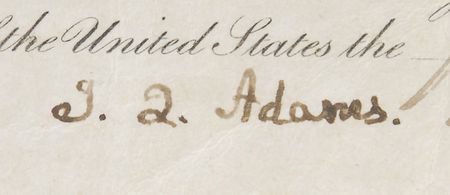 the United States the
J. Q. Adams.